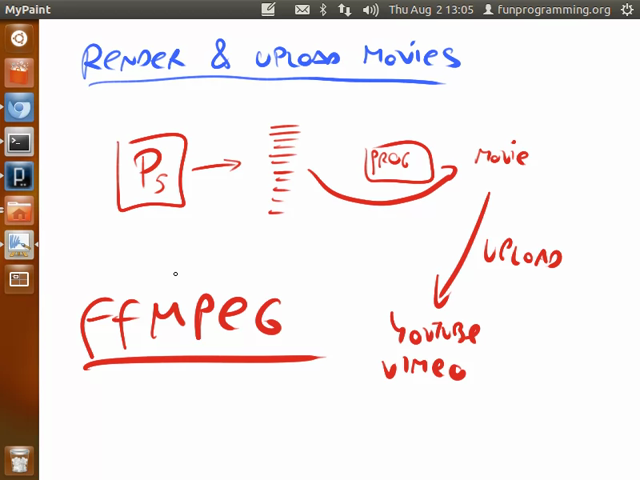 MyPaint
Thu Aug 2 13:05
funprogramming.org
RENDER & UPLOAD MOVIES
P5
PROG
MOVIE
UPLOAD
FFMPEG
YOUTUBE
VIMEO